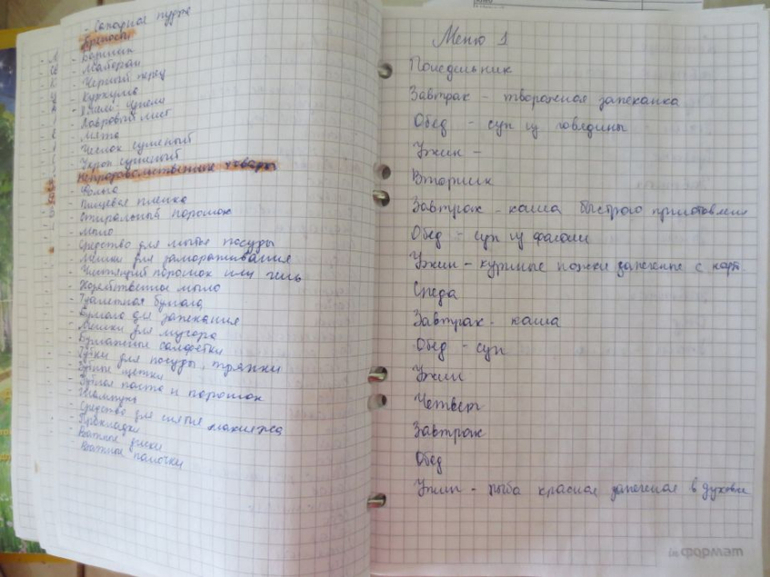 - Сахарная пудра
Пряности
- Базилик
- Майоран
- Черный перец
- Куркума
- Хмели-сунели
- Лавровый лист
- Мята
- Чеснок сушеный
- Укроп сушеный
Непродовольственные товары
- Фольга
- Пищевая пленка
- Стиральный порошок
- Мыло
- Средство для мытья посуды
- Мешки для замораживания
- Чистящий порошок или гель
- Хозяйственное мыло
- Туалетная бумага
- Бумага для запекания
- Мешки для мусора
- Бумажные салфетки
- Губки для посуды, тряпки
- Зубные щетки
- Зубная паста и порошок
- Шампунь
- Средство для снятия макияжа
- Прокладки
- Ватные диски
- Ватные палочки
Меню 1
Понедельник
Завтрак - творожная запеканка
Обед - суп из говядины
Ужин -
Вторник
Завтрак - каша быстрого приготовлен
Обед - суп из фасоли
Ужин - куриные ножки запеченые с карт.
Среда
Завтрак - каша
Обед - суп
Ужин
Четверг
Завтрак
Обед
Ужин - рыба красная запеченая в духовке
формат